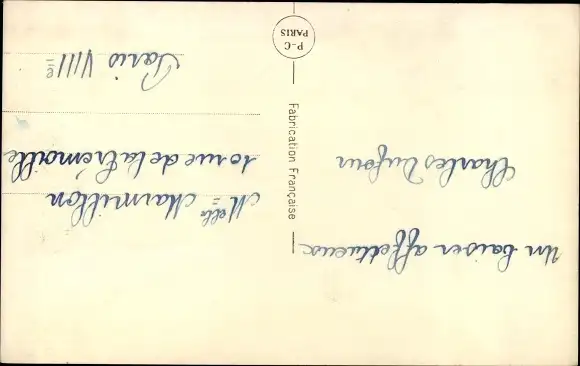 Un baiser affectueux
Charles Dufour
P-C
PARIS
Fabrication Française
Melle Marmillon
10 rue de la Trémoille
Paris VIIIe